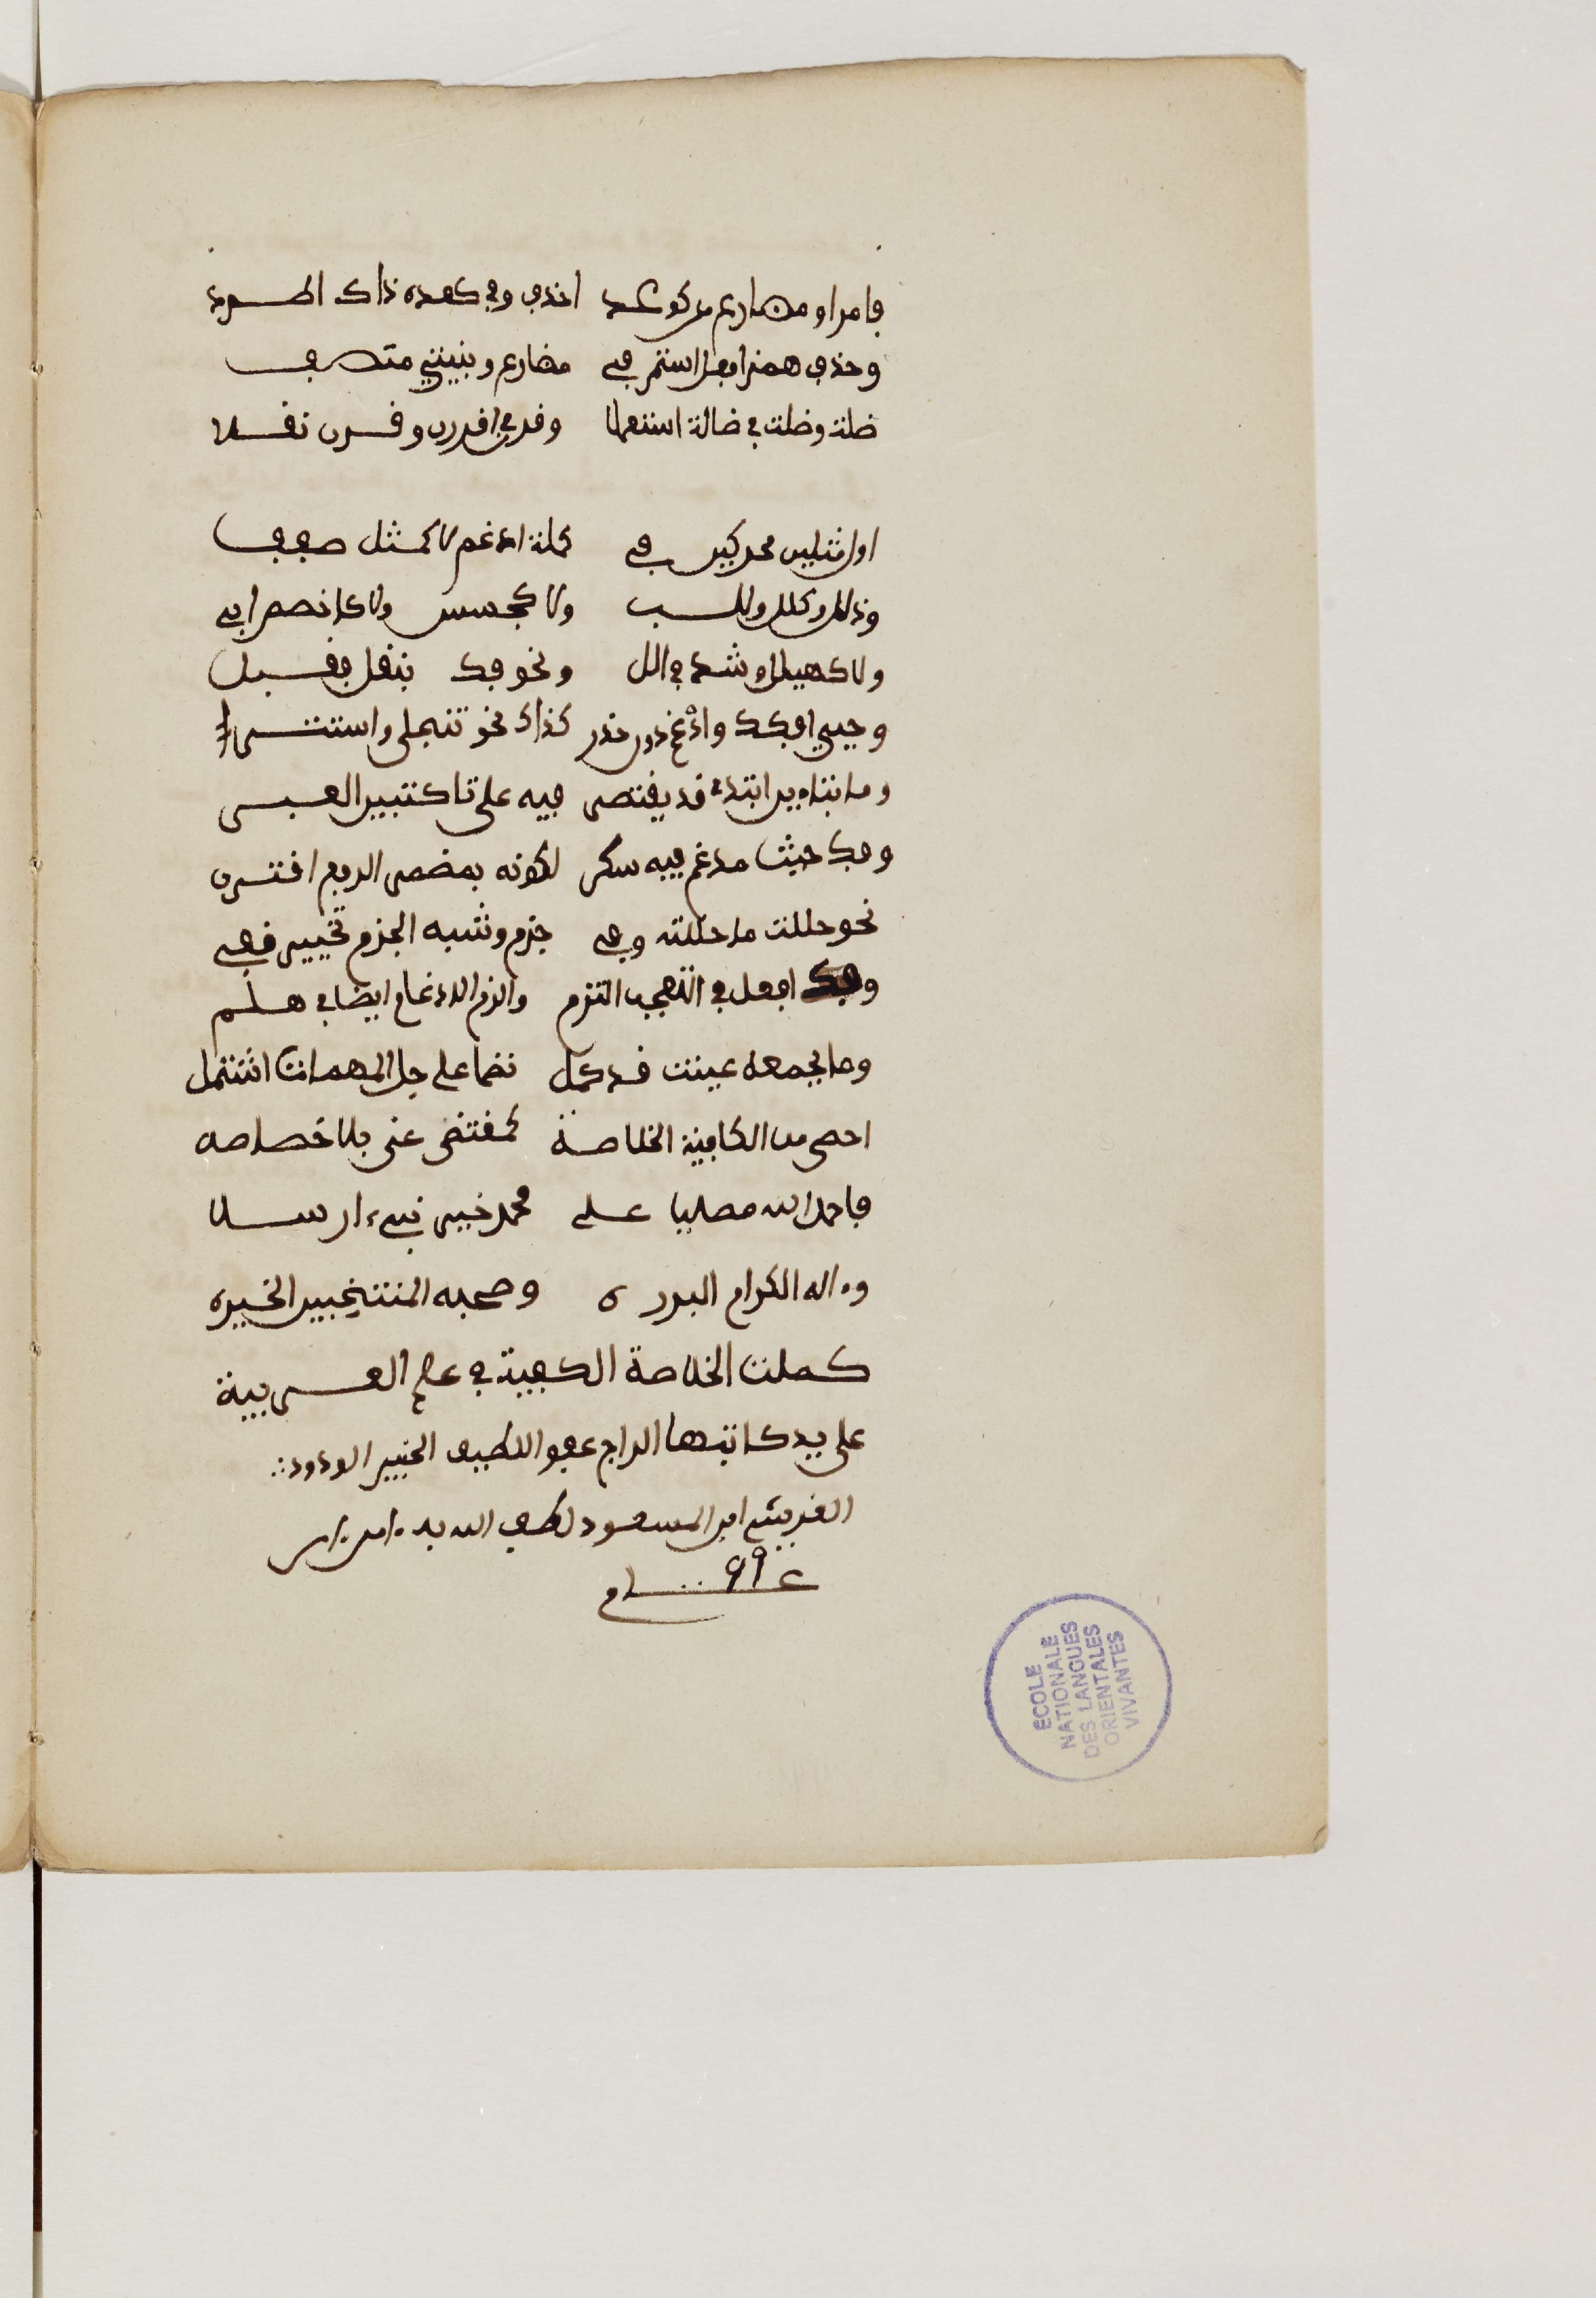 فا مر او مضارع من كوعد احذف وفي كعدة ذاك اطرد
وحذف همز افعل استمر في مضارع وبنيتي متصف
ظلت وظلت في ظللت استعملا وقرن في اقررن وقرن نقلا
اول مثلين محركين في كلمة ادغم لا كمثل صفف
وذلل وكلل ولبب ولا كجسس ولا كاخصص ابي
ولا كهيلل وشذ في الل ونحوه فك بنقل فقبل
وحيي افكك وادغم دون حذر كذاك نحو تتجلى واستتر
وما بتاءين ابتدء قد يقتصر فيه على تا كتبين العبر
وفك حيث مدغم فيه سكن لكونه بمضمر الرفع اقترن
نحو حللت ما حللته وفي جزم وشبه الجزم تخيير قفي
وفك افعل في التعجب التزم والتزم الادغام ايضا في هلم
وما بجمعه عنيت قد كمل نظما على جل المهمات اشتمل
احصى من الكافية الخلاصة كما اقتضى غنى بلا خصاصه
فاحمد الله مصليا على محمد خير نبيء ارسلا
وءاله الكرام البررة وصحبه المنتخبين الخيره
كملت الخلاصة الكافية في علم العربية
على يد كاتبها الراجي عفو اللطيف الخبير الودود
القريشي ابن المسعود لطف الله به ءامين ءامين
عـ 99 ـام
ECOLE
NATIONALE
DES LANGUES
ORIENTALES
VIVANTES